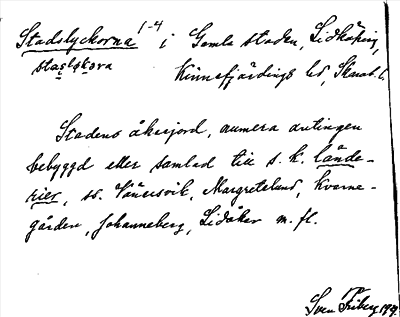 Stadslyckorna 1-4 i Gamla staden, Lidköping,
Kinnefjärdings hd, Skarab. l.
Stadens åkerjord, numera antingen
bebyggd eller samlad till s. k. lände-
rier, ss. Vänersvik, Margretelund, Kvarne-
gården, Johanneberg, Lidåker m. fl.
Sven Friberg